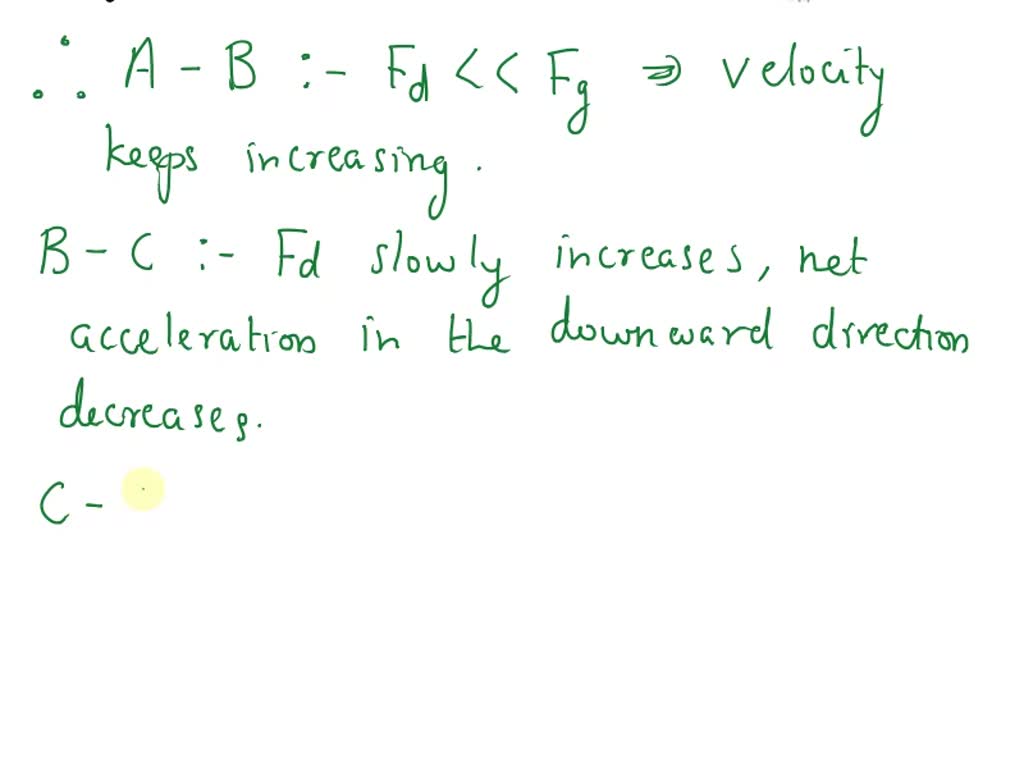 ∴ A - B :- Fd << Fg ⇒ velocity
keeps increasing.
B - C :- Fd slowly increases, net
acceleration in the downward direction
decreases.
C -